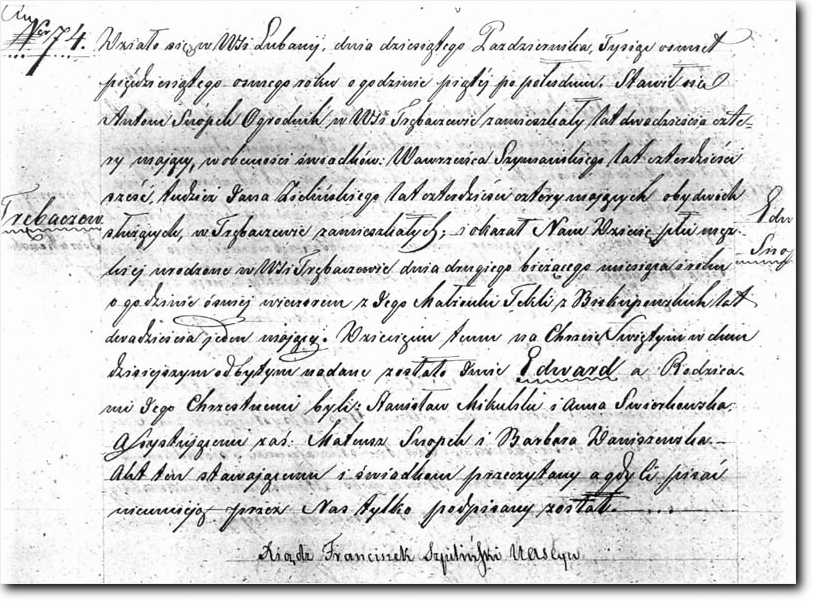 Nro 74.
Działo się w Wsi Lubany, dnia dziesiątego Pazdziernika, Tysiąc osmset
pięćdziesiątego osmego roku o godzinie piątéj po południu. Stawił się
Antoni Snopek Ogrodnik w Wsi Trębaczewie zamieszkały lat dwadzieścia czte-
ry mający, w obecności świadków: Wawrzeńca Szymańskiego lat czterdzieści
sześć, tudzież Jana Zielińskiego lat czterdzieści cztéry mających obydwóch
Trębaczew.
służących, w Trębaczewie zamieszkałych; i okazał Nam Dziecię płci męz-
kiej urodzone w Wsi Trębaczewie dnia drugiego bieżącego miesiąca i roku
o godzinie ósméj wieczorem z Jego Małżonki Tekli z Biskupowskich lat
dwadzieścia jeden mającéj. Dziecięciu temu na Chrzcie Świętym w dniu
dzisiejszym odbytym nadane zostało Imie Edward a Rodzica-
mi Jego Chrzestnemi byli: Stanisław Mikulski i Anna
Assystującemi zaś: Mateusz Snopek i Barbara Waniszewska.
Akt ten stawającemu i świadkom przeczytany a gdy Ci pisać
nieumieją przez Nas tylko podpisany został.
Ksiądz Franciszek
Edw
Sno